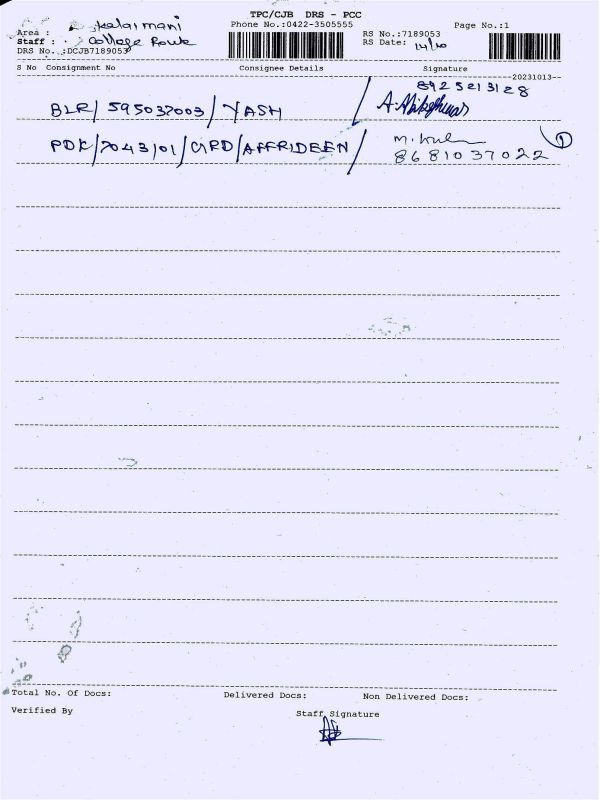 TPC/CJB DRS - PCC
Phone No.:0422-3505555
Page No.:1
Area : Kalaimani
Staff : College Route
DRS No..:DCJB7189053
RS No.:7189053
RS Date: 14/10
S No Consignment No Consignee Details Signature
--20231013--
8925213128
BLR/ 595037003 / YASH /
PDK/7043101/CIPD/AFFRIDEEN/
8681037022
1
Total No. Of Docs: Delivered Docs: Non Delivered Docs:
Verified By Staff Signature